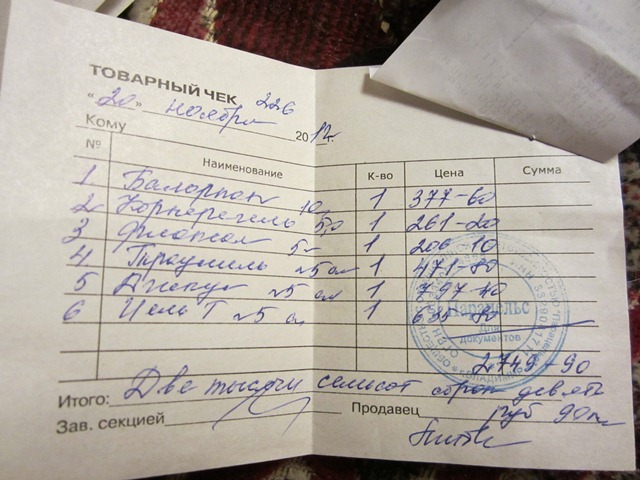 ТОВАРНЫЙ ЧЕК 226
"20" ноября 2012г.
Кому
№ Наименование К-во Цена Сумма
1 Баларпан 10 1 377-60
2 Корнерегель 5,0 1 261-20
3 Флоксал 5 1 206-10
4 Траумель №5 1 471-80
5 №5 1 797-40
6 Цель Т №5 1 635-80
Для
документов
2749-90
Итого: Две тысячи семьсот сорок девять
Зав. секцией Продавец руб 90к